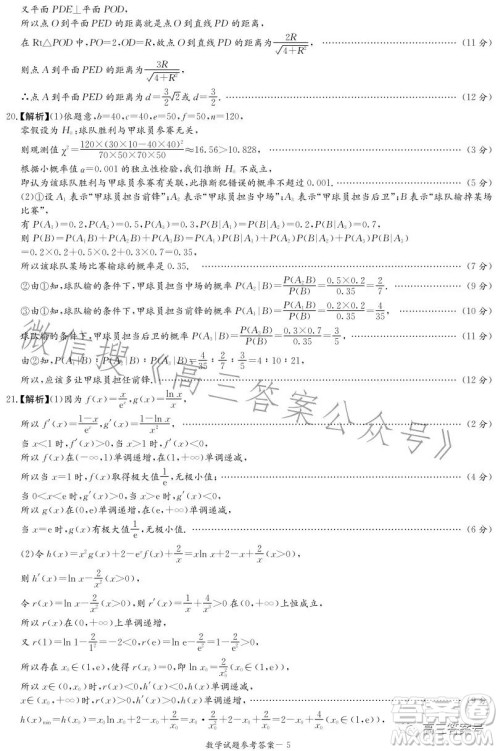 又平面 PDE⊥平面 POD,
所以点 O 到平面 PED 的距离就是点 O 到直线 PD 的距离.
在 Rt△POD 中, PO=2, OD=R, 故点 O 到直线 PD 的距离为 2R/√(4+R²). (11 分)
则点 A 到平面 PED 的距离为 3R/√(4+R²).
∴点 A 到平面 PED 的距离为 d=(3/2)√2 或 d=3/2. (12 分)
20.【解析】(1)依题意, b=40, c=40, e=50, f=50, n=120,
零假设为 H₀:球队胜利与甲球员参赛无关,
则观测值 χ²=120×(30×10-40×40)²/(70×50×70×50)≈16.56>10.828, (3 分)
根据小概率值 α=0.001 的独立性检验, 我们推断 H₀ 不成立,
即认为该球队胜利与甲球员参赛有关联, 此推断犯错误的概率不超过 0.001. (5 分)
(2)①设 A₁ 表示“甲球员担当前锋”; A₂ 表示“甲球员担当中场”; A₃ 表示“甲球员担当后卫”; B 表示“球队输掉某场
比赛”,
有 P(A₁)=0.2, P(A₂)=0.5, P(A₃)=0.3, P(B|A₁)=0.2, P(B|A₂)=0.2, P(B|A₃)=0.7,
则 P(B)=P(A₁B)+P(A₂B)+P(A₃B)=P(A₁)P(B|A₁)+P(A₂)P(B|A₂)+P(A₃)P(B|A₃)
=0.2×0.2+0.5×0.2+0.3×0.7=0.35.
所以该球队某场比赛输球的概率是 0.35. (7 分)
②由①知, 球队输的条件下, 甲球员担当中场的概率 P(A₂|B)=P(A₂B)/P(B)=0.5×0.2/0.35=2/7. (9 分)
③由①知, 输球的条件下, 甲球员担当前锋的概率 P(A₁|B)=P(A₁B)/P(B)=0.2×0.2/0.35=4/35.
球队输的条件下, 甲球员担当后卫的概率 P(A₃|B)=P(A₃B)/P(B)=0.3×0.7/0.35=3/5.
所以 P(A₁|B):P(A₂|B):P(A₃|B)=4/35:2/7:3/5=4:10:21,
所以, 应该多让甲球员担任前锋. (12 分)
21.【解析】(1)因为 f(x)=x/eˣ, g(x)=ln x/x,
所以 f′(x)=(1-x)/eˣ, g′(x)=(1-ln x)/x², (2 分)
当 x<1 时, f′(x)>0, 当 x>1 时, f′(x)<0,
所以 f(x)在(-∞,1)单调递增, 在(1,+∞)单调递减,
所以当 x=1 时, f(x)取得极大值 1/e, 无极小值; (4 分)
当 0<x<e 时, g′(x)>0, 当 x>e 时, g′(x)<0,
所以 g(x)在(0,e)单调递增, 在(e,+∞)单调递减,
当 x=e 时, g(x)有极大值 1/e, 无极小值. (6 分)
(2)令 h(x)=x²g(x)+2-eˣf(x)+2/x=xln x+2-x+2/x(x>0),
则 h′(x)=ln x-2/x²(x>0),
令 r(x)=ln x-2/x²(x>0), 则 r′(x)=1/x+4/x³>0 在(0,+∞)上恒成立,
所以 r(x)在(0,+∞)单调递增,
又 r(1)=ln 1-2/1²=-2<0, r(e)=ln e-2/e²>0,
所以存在 x₀∈(1,e), 使得 r(x₀)=0, 即 ln x₀=2/x₀²,
所以 x∈(0,x₀)时, r(x)<0, 即 h′(x)<0,
数学试题参考答案-5
微信搜《高三答案公众号》